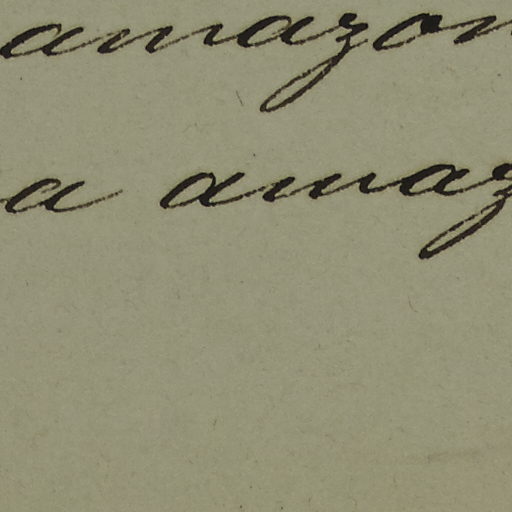 amazon
a amaz